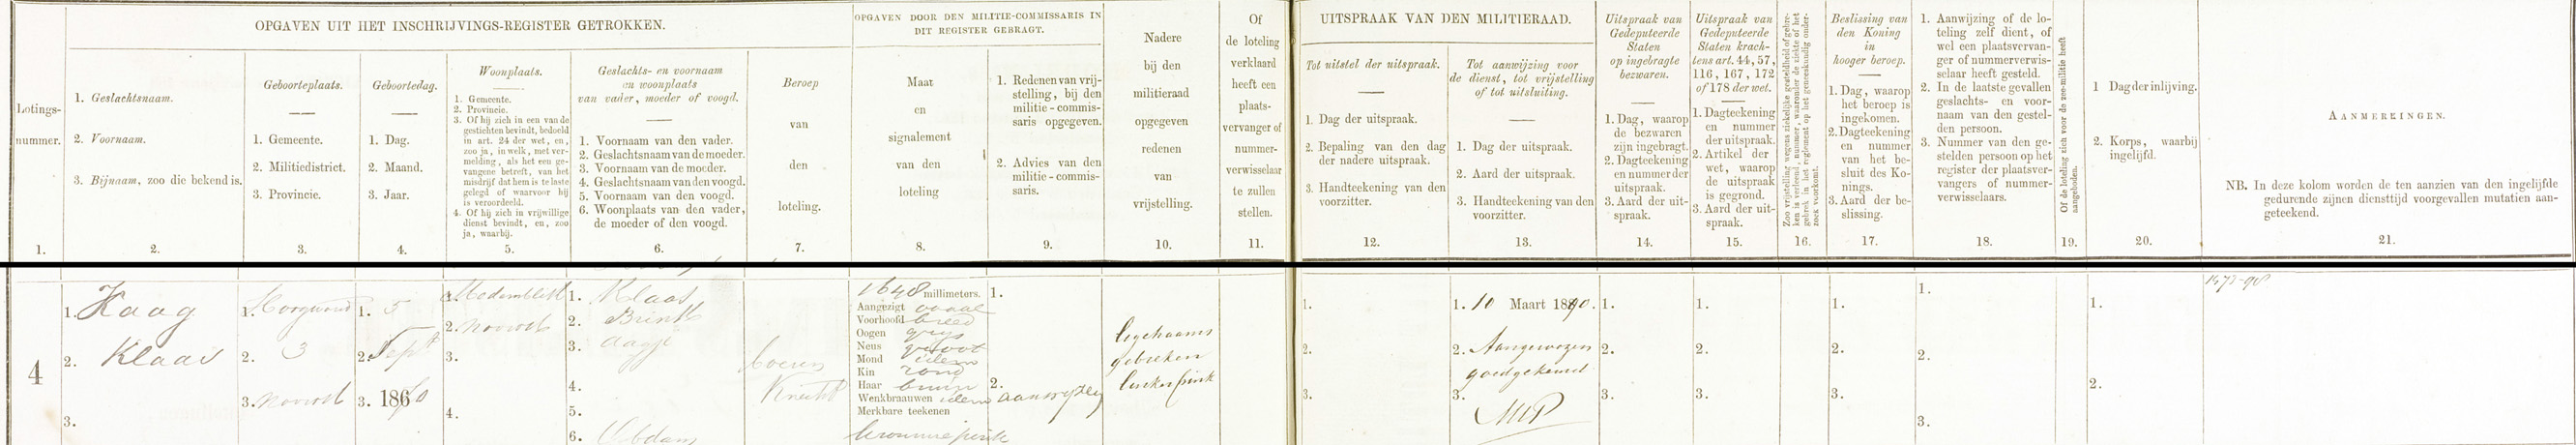 OPGAVEN UIT HET INSCHRIJVINGS-REGISTER GETROKKEN.
OPGAVEN DOOR DEN MILITIE-COMMISSARIS IN
DIT REGISTER GEBRAGT.
Lotings-
nummer.
1.
1. Geslachtsnaam.
2. Voornaam.
3. Bijnaam, zoo die bekend is.
2.
Geboorteplaats.
1. Gemeente.
2. Militiedistrict.
3. Provincie.
3.
Geboortedag.
1. Dag.
2. Maand.
3. Jaar.
4.
Woonplaats.
1. Gemeente.
2. Provincie.
3. Of hij zich in een van de
gestichten bevindt, bedoeld
in art. 24 der wet, en,
zoo ja, in welk, met ver-
melding, als het een ge-
vangene betreft, van het
misdrijf dat hem is te laste
gelegd of waarvoor hij
is veroordeeld.
4. Of hij zich in vrijwillige
dienst bevindt, en, zoo
ja, waarbij.
5.
Geslachts- en voornaam
en woonplaats
van vader, moeder of voogd.
1. Voornaam van den vader.
2. Geslachtsnaam van de moeder.
3. Voornaam van de moeder.
4. Geslachtsnaam van den voogd.
5. Voornaam van den voogd.
6. Woonplaats van den vader,
de moeder of den voogd.
6.
Beroep
van
den
loteling.
7.
Maat
en
signalement
van den
loteling
8.
1. Redenen van vrij-
stelling, bij den
militie-commis-
saris opgegeven.
2. Advies van den
militie-commis-
saris.
9.
Nadere
bij den
militieraad
opgegeven
redenen
van
vrijstelling.
10.
Of
de loteling
verklaard
heeft een
plaats-
vervanger of
nummer-
verwisselaar
te zullen
stellen.
11.
UITSPRAAK VAN DEN MILITIERAAD.
Tot uitstel der uitspraak.
1. Dag der uitspraak.
2. Bepaling van den dag
der nadere uitspraak.
3. Handteekening van den
voorzitter.
12.
Tot aanwijzing voor
de dienst, tot vrijstelling
of tot uitsluiting.
1. Dag der uitspraak.
2. Aard der uitspraak.
3. Handteekening van den
voorzitter.
13.
Uitspraak van
Gedeputeerde
Staten
op ingebragte
bezwaren.
1. Dag, waarop
de bezwaren
zijn ingebragt.
2. Dagteekening
en nummer der
uitspraak.
3. Aard der uit-
spraak.
14.
Uitspraak van
Gedeputeerde
Staten krach-
tens art. 44, 57,
116, 167, 172
of 178 der wet.
1. Dagteekening
en nummer
der uitspraak.
2. Artikel der
wet, waarop
de uitspraak
is gegrond.
3. Aard der uit-
spraak.
15.
Zoo vrijstelling wegens ziekelijke gesteldheid of gebre-
ken is verleend, nummer, waaronder de ziekte of het
gebrek in het reglement op het geneeskundig onder-
zoek voorkomt.
16.
Beslissing van
den Koning
in
hooger beroep.
1. Dag, waarop
het beroep is
ingekomen.
2. Dagteekening
en nummer
van het be-
sluit des Ko-
nings.
3. Aard der be-
slissing.
17.
1. Aanwijzing of de lo-
teling zelf dient, of
wel een plaatsvervan-
ger of nummerverwis-
selaar heeft gesteld.
2. In de laatste gevallen
geslachts- en voor-
naam van den gestel-
den persoon.
3. Nummer van den ge-
stelden persoon op het
register der plaatsver-
vangers of nummer-
verwisselaars.
18.
Of de loteling zich voor de zee-militie heeft
aangeboden.
19.
1 Dag der inlijving.
2. Korps, waarbij
ingelijfd.
20.
AANMERKINGEN.
NB. In deze kolom worden de ten aanzien van den ingelijfde
gedurende zijnen diensttijd voorgevallen mutatien aan-
geteekend.
21.
4
1. Kaag
2. Klaas
3.
1.
2. 3
3. Noordh
1. 5
2. Sept
3. 1860
1. Medemblik
2. Noordh
3.
4.
1. Klaas
2. Brink
3. Aagje
4.
5.
6. Obdam
boeren
Knecht
1648 millimeters.
Aangezigt ovaal
Voorhoofd breed
Oogen grijs
Neus groot
Mond idem
Kin rond
Haar bruin
Wenkbraauwen idem
Merkbare teekenen
kromme pink
1.
2. aanwijzing
ligchaams
gebreken
linker pink
1.
2.
3.
1. 10 Maart 1880.
2. Aangewezen
goedgekeurd
3.
1.
2.
3.
1.
2.
3.
1.
2.
3.
1.
2.
3.
1.
2.